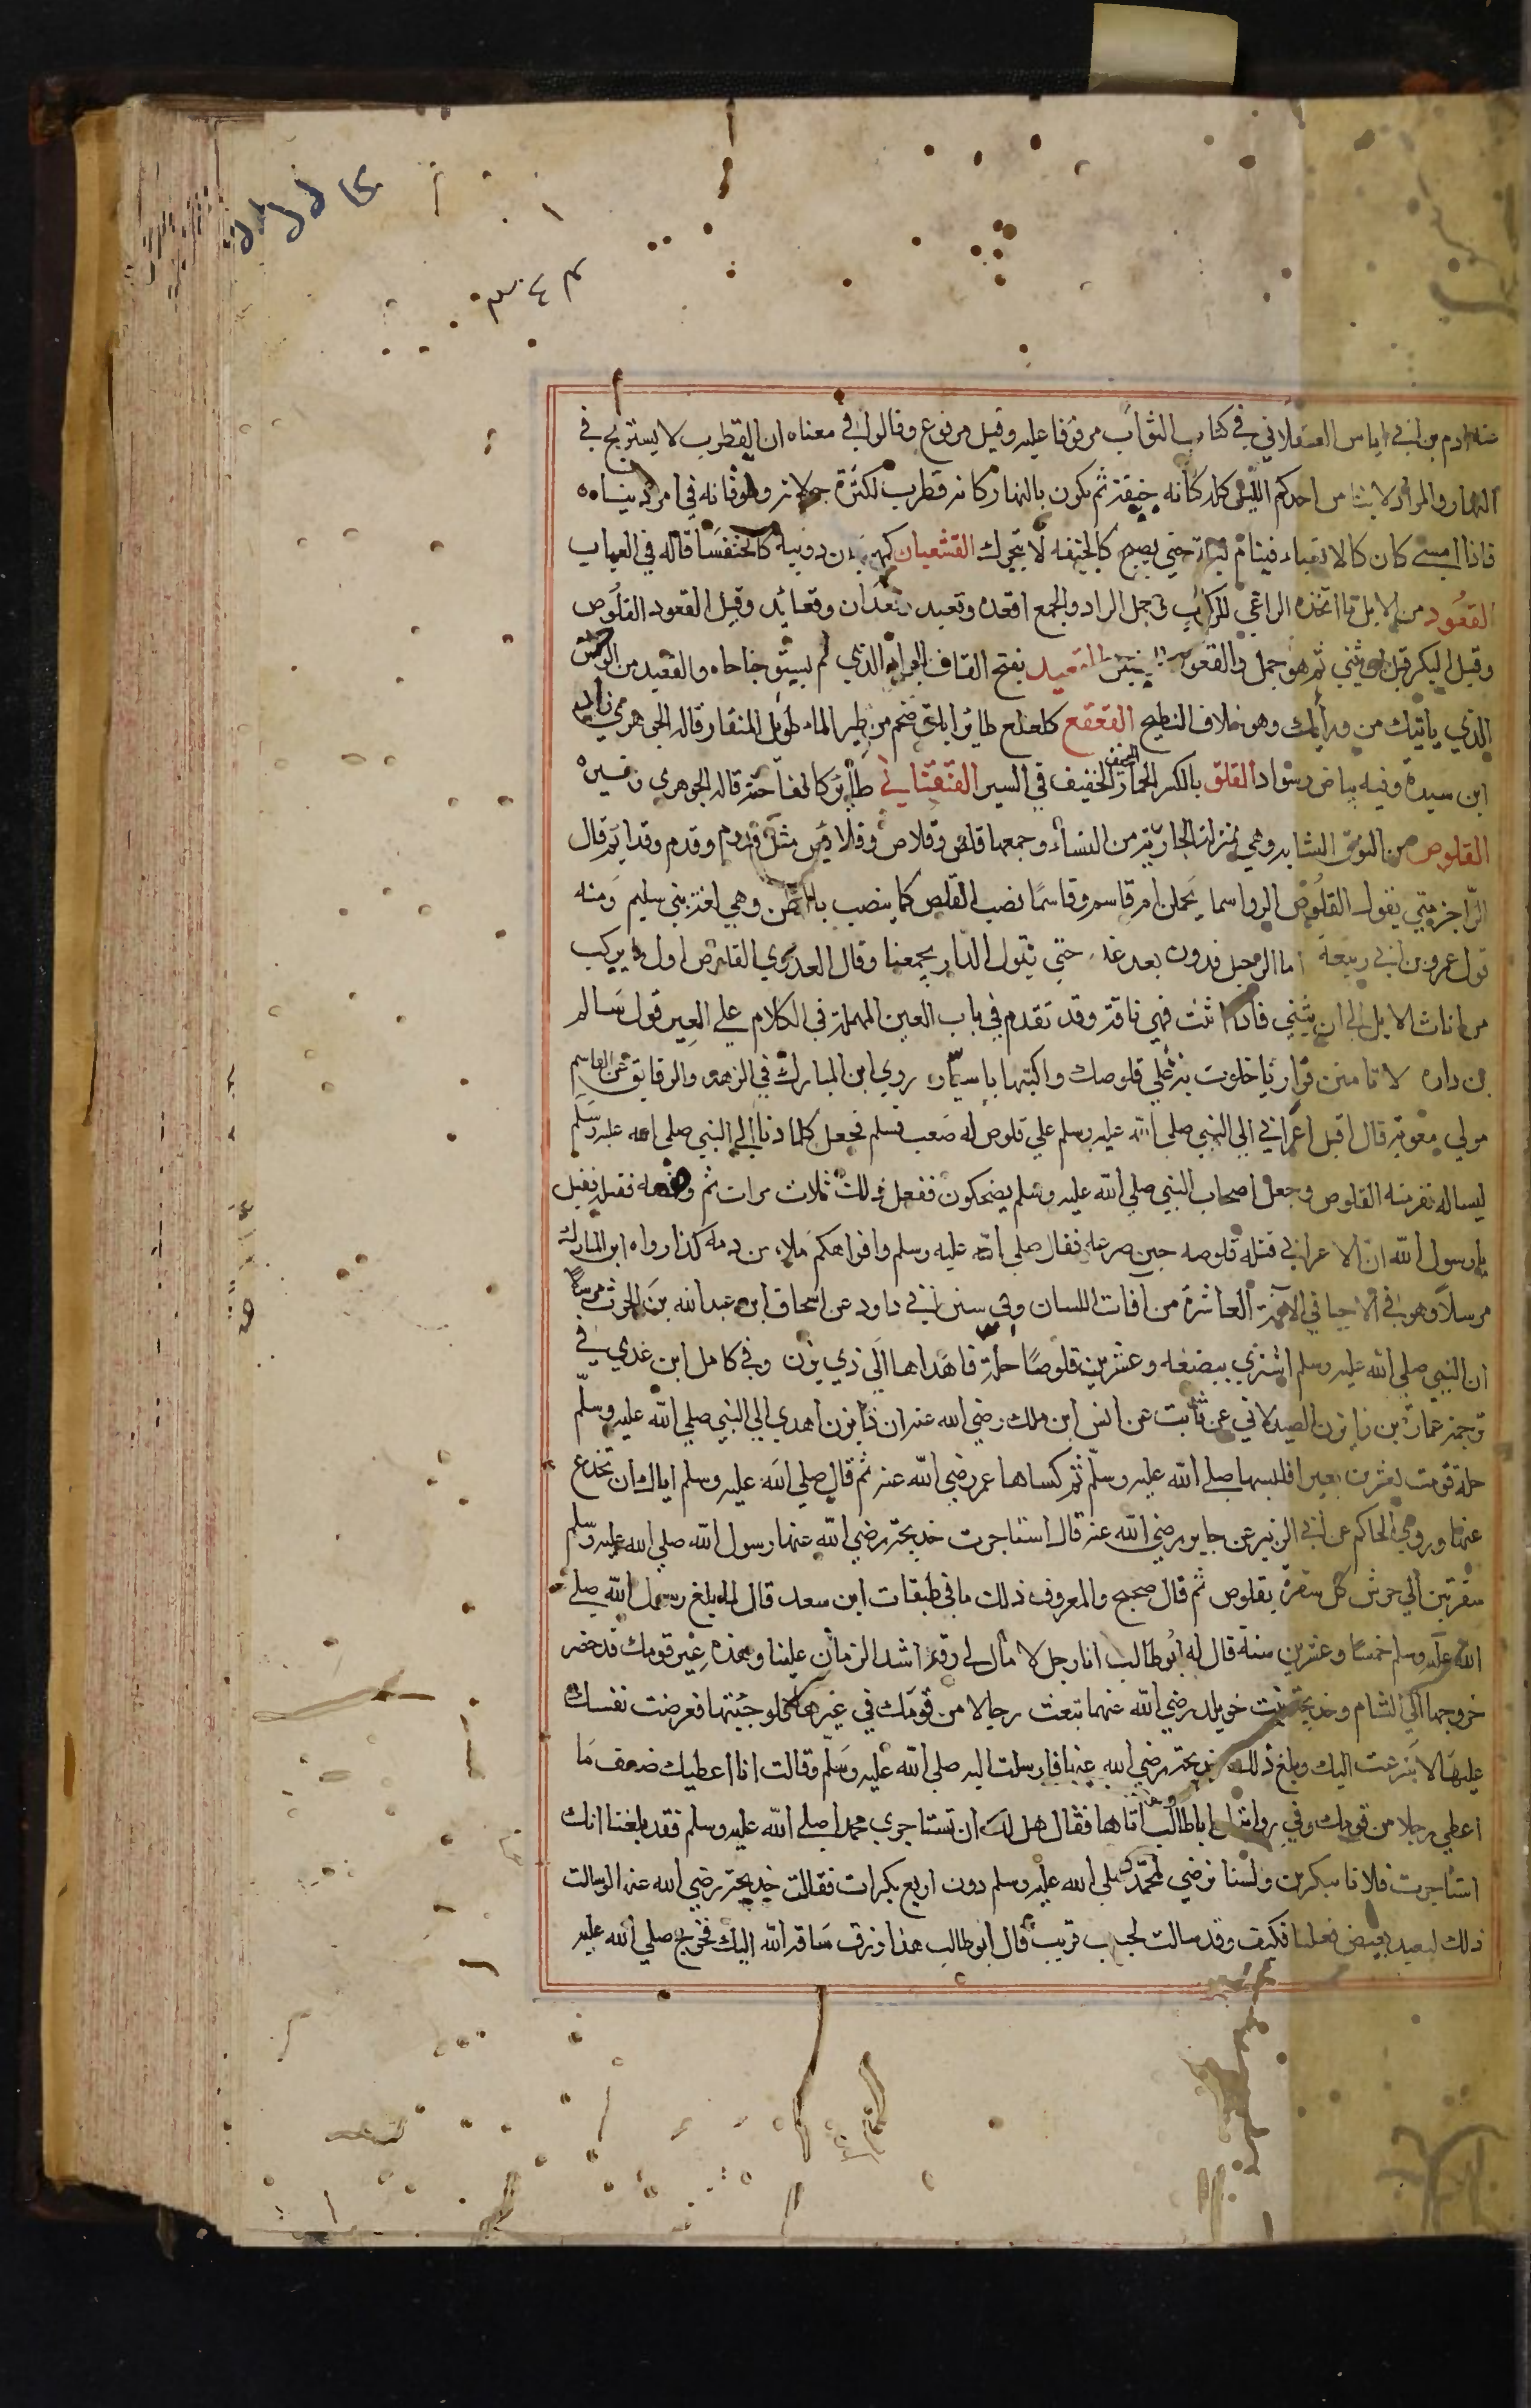 عنه ادم بن ابي اياس العسقلاني في كتاب الثواب مرفوقا عليه وقيل مرفوع وقالوا في معناه ان القطرب لا يستريح في
النهار والمراد لا ينامن احدكم الليل كله كانه جيفة ثم يكون بالنهار كانه قطرب لكثرة جولانه وطوفانه في امر دنياه
فاذا امسى كان كالا تعبا فينام ليلته حتي يصبح كالجيفه لا يتحرك القشعبان دويبة كالخنفسا قاله في العباب
القعود من الابل ما اتخذه الراعي للركوب وحمل الزاد والجمع اقعده وقعيد وقعدان وقعائد وقيل القعود القلوص
وقيل البكر قبل ان يثني ثم هو جمل والقعود القعيد بفتح القاف الجراد الذي لم يستو جناحاه والقعيد من الوحش
الذي ياتيك من ورايك وهو خلاف النطيح القعقع كلعلع طائر ابلق ضخم من طير الماء طويل المنقار قاله الجوهري زاد
ابن سيدة وفيه بياض وسواد القلق بالكسر الحمار الخفيف في السير طائر كالفاختة قاله الجوهرى وغيره
القلوص من النوق الشابه وهي بمنزلة الجارية من النساء وجمعها قلص وقلاص وقلائص مثل قدوم وقدم وقدايم قال
الراجز متي تقول القلوص الرواسما يحملن ام قاسم وقاسمًا نصب القلص كما ينصب بالظن وهي لغة بني سليم ومنه
قول عمرو بن ابي ربيعة اما الرحيل فدون بعد غد حتي تقول الدار يجمعنا وقال العدوي القلوص اول ما يركب
من اناث الابل الي ان يثني فاذا اثنت فهي ناقة وقد تقدم في باب العين المهملة في الكلام علي العير قول سالم
بن داره لا تامنن فزاريا خلوت به علي قلوصك واكتبها باسيار روي ابن المبارك في الزهد والرقايق عن القاسم
مولي معوية قال اقبل اعرابي الي النبي صلي الله عليه وسلم علي قلوص له صعب فسلم فجعل كلما دنا الي النبي صلي الله عليه وسلم
ليساله تفر منه القلوص وجعل اصحاب النبي صلي الله عليه وسلم يضحكون ففعل ذلك ثلاث مرات ثم وقصه فقتله فقيل
يا رسول الله ان الاعرابي قتله قلوصه حين صرعه فقال صلي الله عليه وسلم وافواهكم ملاء من دمه كذا رواه ابن المبارك
مرسلا وهو في الاحيا في الافة العاشرة من افات اللسان وفي سنن ابي داود عن اسحاق ابن عبدالله بن الحرث مرسلا
ان النبي صلي الله عليه وسلم اشتري ببضعه وعشرين قلوصًا حلة فاهداها الي ذي يزن وفي كامل ابن عدي في
ترجمة عمارة بن زاذون الصيدلاني عن ثابت عن انس ابن ملك رضي الله عنه ان ذا يزن اهدي الي النبي صلي الله عليه وسلم
حلة قومت بعشرين بعيرا فلبسها صلي الله عليه وسلم ثم كساها عمر رضي الله عنه ثم قال صلي الله عليه وسلم اياك ان تخدع
عنها وروي الحاكم عن ابي الزبير عن جابر رضي الله عنه قال استاجرت خديجة رضي الله عنها رسول الله صلي الله عليه وسلم
سفرتين الي جرش كل سفرة بقلوص ثم قال صحيح والمعروف ذلك ما في طبقات ابن سعد قال لما بلغ رسول الله صلي
الله عليه وسلم خمسًا وعشرين سنة قال له ابو طالب انا رجل لا مال لي وقد اشد الزمان علينا وهذه عير قومك قد حضر
خروجها الي الشام وخديجة بنت خويلد رضي الله عنهما تبعث رجالا من قومك في غيرها فلو جئتها فعرضت نفسك
عليها لاسرعت اليك وبلغ ذلك خديجة رضي الله عنها فارسلت اليه صلي الله عليه وسلم وقالت انا اعطيك ضعف ما
اعطي رجلا من قومك وفي رواية ان اباطالب اتاها فقال هل لك ان تستاجري محمدا صلي الله عليه وسلم فقد بلغنا انك
استاجرت فلانا ببكرين ولسنا نرضي لمحمد صلي الله عليه وسلم دون اربع بكرات فقالت خديجة رضي الله عنها لو سالت
ذلك لبعيد بغيض فعلنا فكيف وقد سالت لحبيب قريب قال ابو طالب هذا رزق ساقه الله اليك فخرج صلي الله عليه